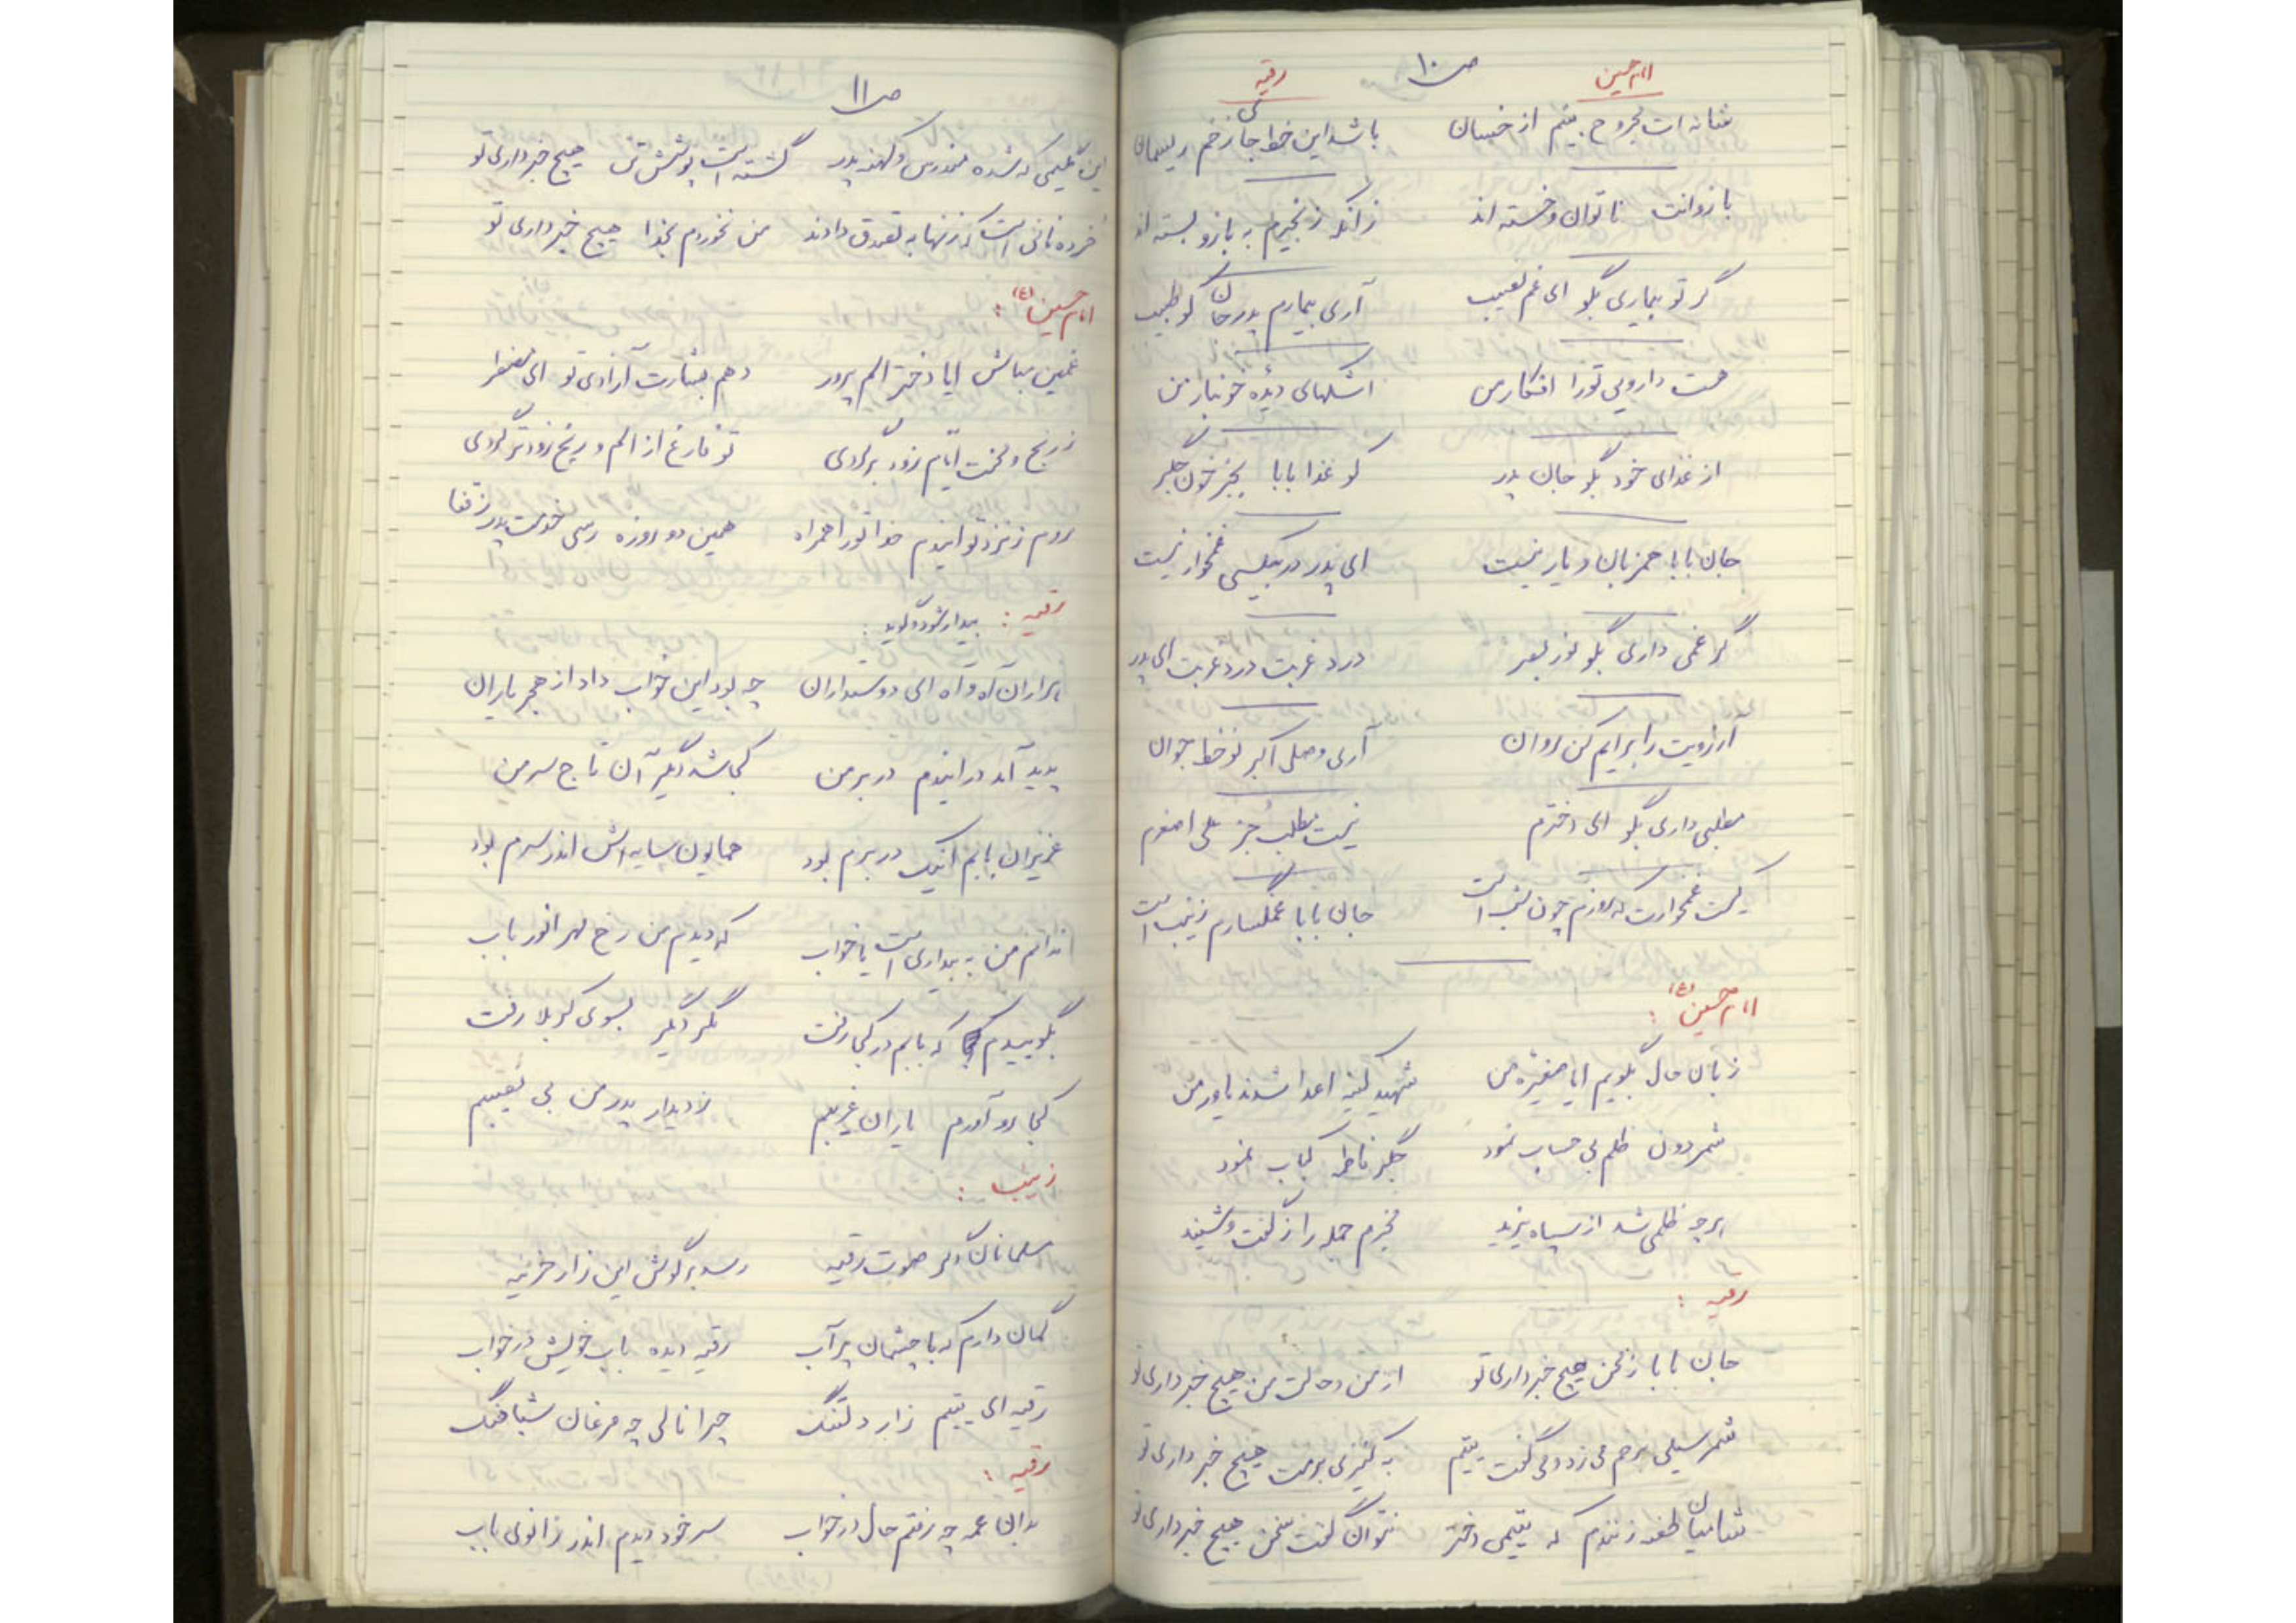 ص ۱۰
امام حسین رقیه
شانه ات مجروح بینم از خسان باشد این خط جا زخم ریسمان
بازوانت ناتوان و خسته اند زانکه زنجیرم به بازو بسته اند
گر تو بیماری بگو ای غم نصیب آری بیمارم پدر جان کو طبیب
هست دارویی تو را افکار من اشکهای دیده خونبار من
از غذای خود بگو جان پدر کو غذا بابا بجز خون جگر
جان بابا همزبان و یار نیست ای پدر در بیکسی غمخوار نیست
گر غمی داری بگو نور بصر درد غربت درد غربت ای پدر
آرزویت را برایم کن روان آری وصل اکبر نوخط جوان
مطلبی داری بگو ای دخترم نیست مطلب جز علی اصغرم
کیست غمخوارت که روزم چون شب است جان بابا غمگسارم زینب است
امام حسین (ع) :
زبان حال بگویم ایا صغیره من شهید کینه اعدا شدند یاور من
شمر دون ظلم بی حساب نمود جگر فاطمه کباب نمود
هرچه ظلمی شد از سپاه یزید جمله را ز گفت و شنید
رقیه :
جان بابا ز من هیچ خبر داری تو از من و حالت من هیچ خبر داری تو
شمر سیلی برخم می زد و می گفت یتیم به کنیزی هیچ خبر داری تو
شامیان طعنه زنندم که یتیمی دختر نتوان گفت سخن هیچ خبر داری تو
ص ۱۱
این گلیمی که شده مندرس و کهنه پدر گشته است پوشش تن هیچ خبر داری تو
خرده نانی است که زنها به تصدق دادند من نخوردم بخدا هیچ خبر داری تو
امام حسین (ع) :
غمین مباش ایا دختر الم پرور دهم بشارت آزادی تو ای مضطر
ز رنج و محنت ایام زود برگردی تو فارغ از الم و رنج زودتر گردی
روم ز نزد تو ایندم خدا تو را همراه همین دو روزه رسی خدمت پدر ز قفا
رقیه : بیدار شود و گوید :
هزاران آه و آه ای دوستداران چه بود این خواب داد از هجر یاران
پدید آمد در ایندم در بر من کجا شد دیگر آن تاج سر من
عزیزان بابم اینک در برم بود همایون سایه اش اندر سرم بود
ندانم من به بیداری است یا خواب که دیدم من رخ مهر انور باب
بگوییدم که بابم در کجا رفت مگر دیگر بسوی کربلا رفت
کجا رو آورم یاران غریبم ز دیدار پدر من بی نصیبم
زینب :
مسلمانان دگر صوت رقیه رسد بر گوش این زار حزینه
گمان دارم که با چشمان پر آب رقیه دیده باب خویش در خواب
رقیه ای یتیم زار دلتنگ چرا نالی چه مرغان شباهنگ
رقیه :
بدان عمه چه رفتم حال در خواب سر خود دیدم اندر زانوی باب